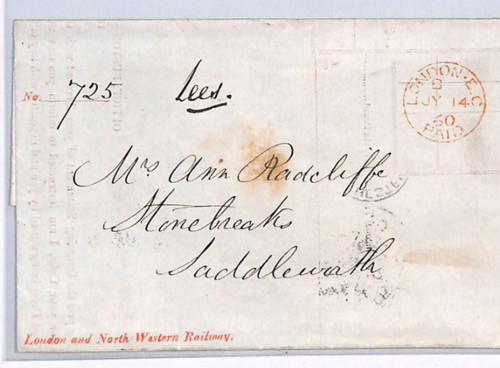 No. 725
Lees.
LONDON·E.C
JY 14
60
PAID
Mrs Ann Radcliffe
Stonebreaks
Saddleworth
London and North Western Railway.